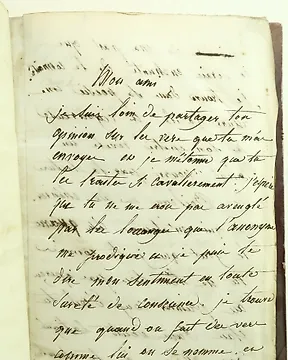 Mon ami
je suis loin de partager ton
opinion sur les vers que tu m'as
envoyés et je m'étonne que tu
les traites si cavalièrement. j'espère
que tu ne me crois pas aveuglé
par les louanges que l'anonyme
me prodigue et je puis te
dire mon sentiment en toute
sureté de conscience. je trouve
que quand on fait des vers
comme lui on se nomme, et